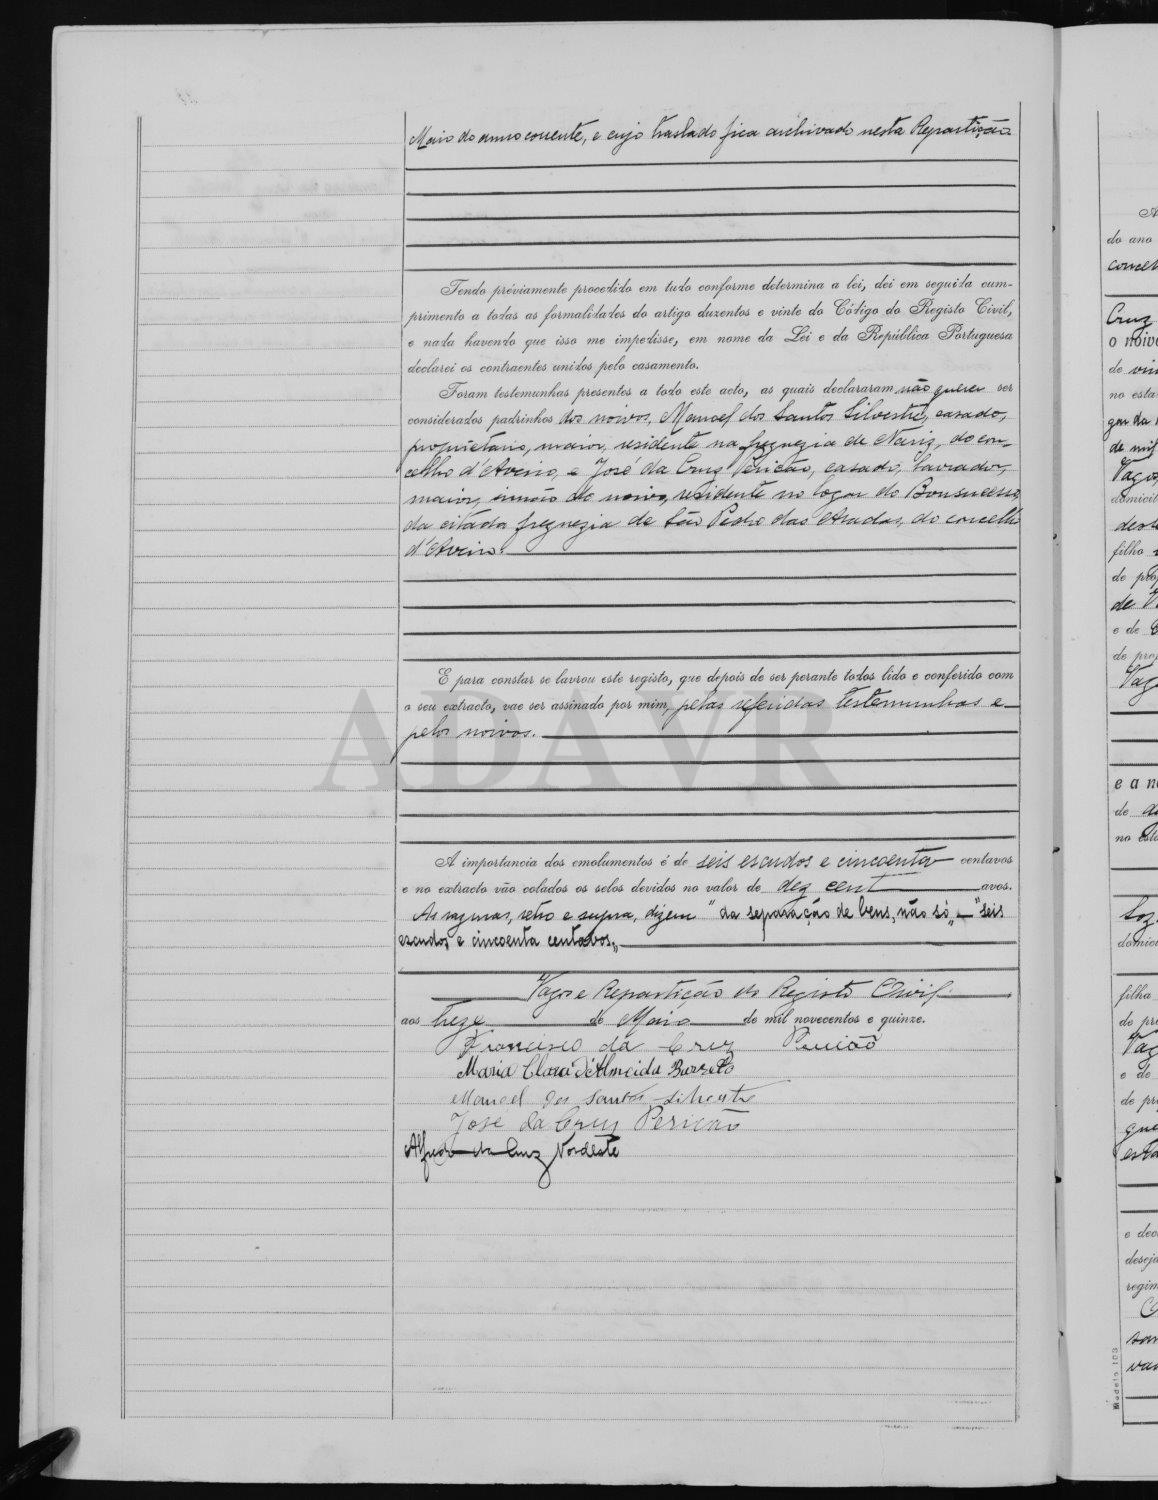 Maio do anno corrente, e cujo traslado fica archivado nesta Repartição
Tendo préviamente procedido em tudo conforme determina a lei, dei em seguida cum-
primento a todas as formalidades do artigo duzentos e vinte do Código do Registo Civil,
e nada havendo que isso me impedisse, em nome da Lei e da República Portuguesa
declarei os contraentes unidos pelo casamento.
Foram testemunhas presentes a todo este acto, as quais declararam não querer ser
considerados padrinhos dos noivos, Manoel dos Santos Silvestre, casado,
proprietario, maior, residente na freguezia de Nariz, do con-
celho d'Aveiro, e José da Cruz Pericão, casado, lavrador,
maior, irmão do noivo, residente no logar do Bonsucesso
da citada freguezia de São Pedro das Aradas, do concelho
d'Aveiro.
E para constar se lavrou este registo, que depois de ser perante todos lido e conferido com
o seu extracto, vae ser assinado por mim, pelas referidas testemunhas e
pelos noivos.
A importancia dos emolumentos é de seis escudos e cincoenta centavos
e no extracto vão colados os selos devidos no valor de dez cent avos.
As razuras, retro e supra, dizem "da separação de bens, não só" — "seis
escudos e cincoenta centavos".
Vagos e Repartição do Registo Civil
aos treze de Maio de mil novecentos e quinze.
Francisco da Cruz Pericão
Maria Clara d'Almeida Barreto
Manoel dos Santos Silvestre
José da Cruz Pericão
Alfredo da Cruz Nordeste
ADAVR
do ano
Cruz
o noivo
de
no esta
de
Vagos,
domicil
filho
de prop
de
e de
de prop
e a n
de
no
domici
filha
de pr
e de
de pr
e dec
deseja
regim
Modelo 103